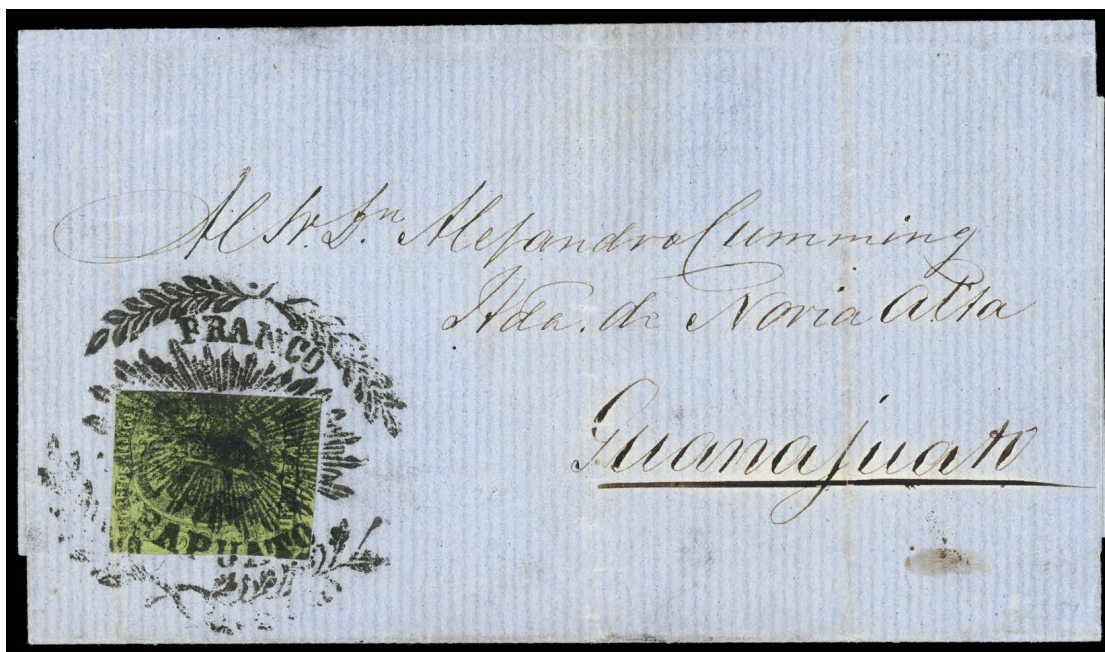 Al Sr. Dn. Alejandro Cumming
Hda. de Noria Alta
Guanajuato
FRANCO